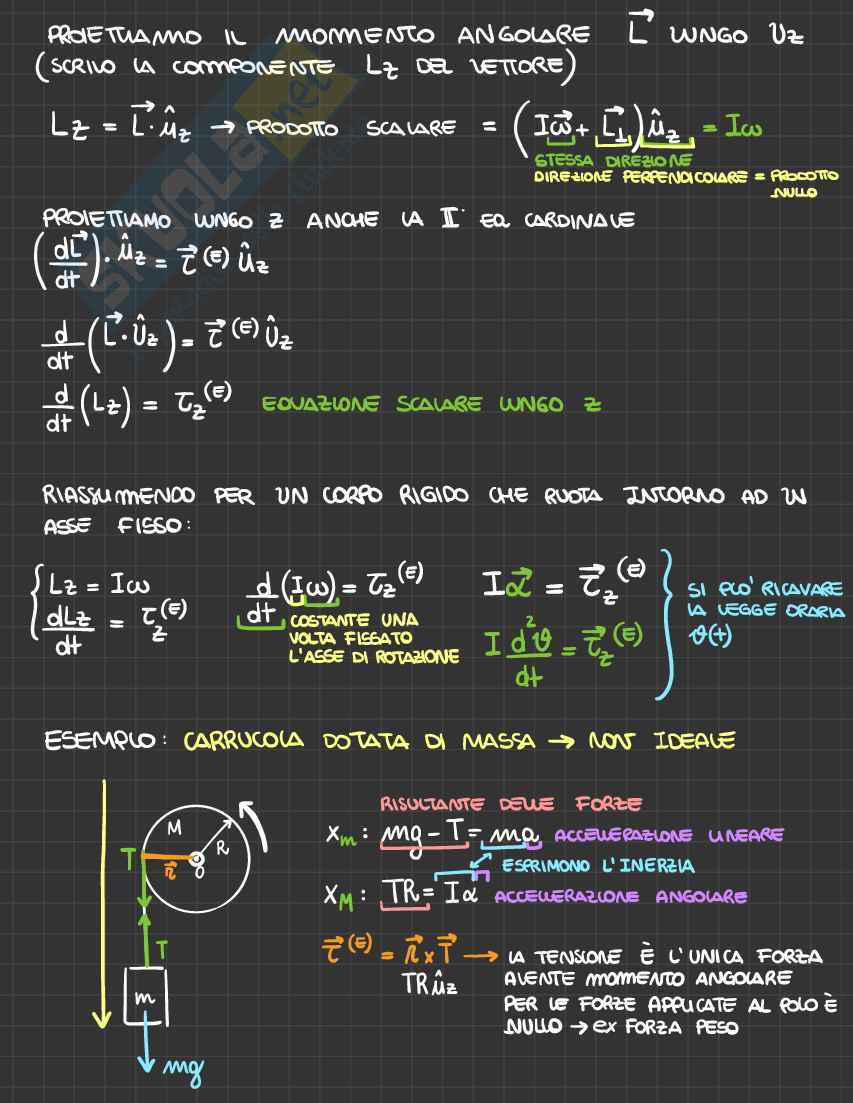 PROIETTIAMO IL MOMENTO ANGOLARE L⃗ LUNGO Uz
(SCRIVO LA COMPONENTE Lz DEL VETTORE)
Lz = L⃗·û_z → PRODOTTO SCALARE = (Iω⃗ + L⃗⊥)û_z = Iω
STESSA DIREZIONE
DIREZIONE PERPENDICOLARE = PRODOTTO
NULLO
PROIETTIAMO LUNGO Z ANCHE LA II EQ CARDINALE
(dL⃗/dt)·û_z = τ⃗^(E) û_z
d/dt (L⃗·Û_z) = τ⃗^(E) Û_z
d/dt (Lz) = τ_z^(E) EQUAZIONE SCALARE LUNGO Z
RIASSUMENDO PER UN CORPO RIGIDO CHE RUOTA INTORNO AD UN
ASSE FISSO:
Lz = Iω
dLz/dt = τ_z^(E)
d/dt (Iω) = τ_z^(E)
COSTANTE UNA
VOLTA FISSATO
L'ASSE DI ROTAZIONE
Iα⃗ = τ⃗_z^(E)
I d²ϑ/dt = τ⃗_z^(E)
SI PUO' RICAVARE
LA LEGGE ORARIA
ϑ(t)
ESEMPIO: CARRUCOLA DOTATA DI MASSA → NON IDEALE
M
R
T
r⃗
O
T
m
mg
RISULTANTE DELLE FORZE
X_m: mg - T = ma ACCELERAZIONE LINEARE
ESPRIMONO L'INERZIA
X_M: TR = Iα ACCELERAZIONE ANGOLARE
τ⃗^(E) = r⃗ x T⃗ → LA TENSIONE È L'UNICA FORZA
TR û_z
AVENTE MOMENTO ANGOLARE
PER LE FORZE APPLICATE AL POLO È
NULLO → ex FORZA PESO